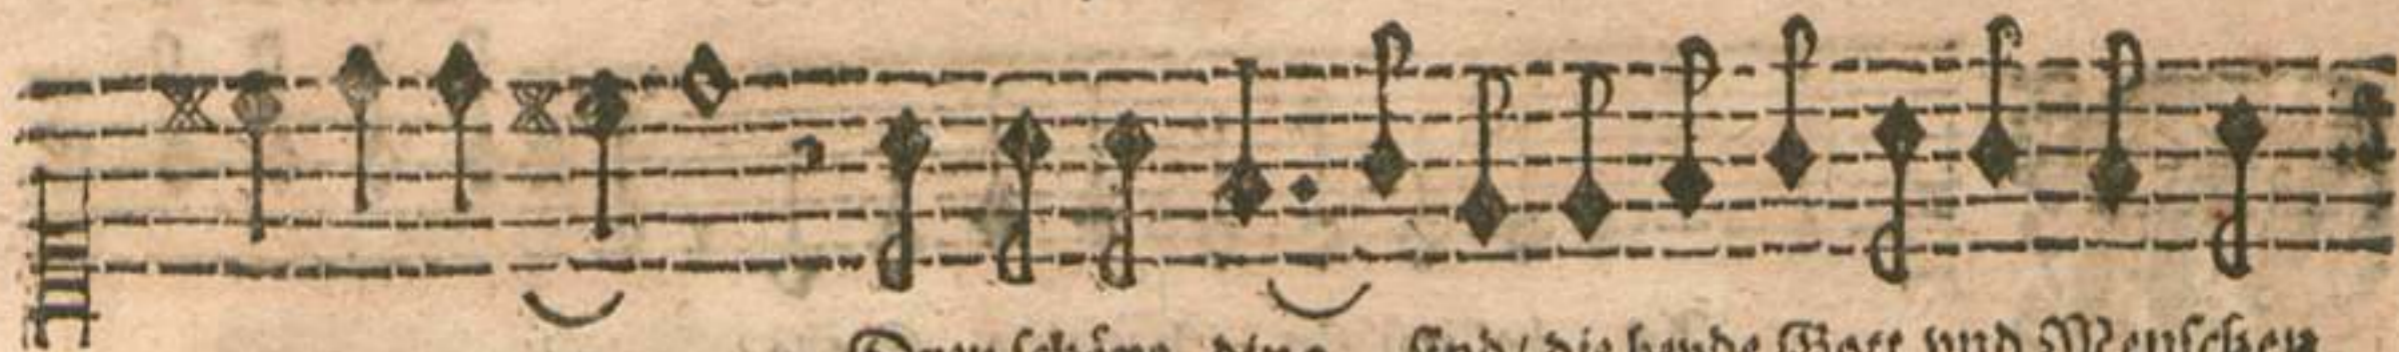 Drey schöne ding sind / die beyde Gott und Menschen